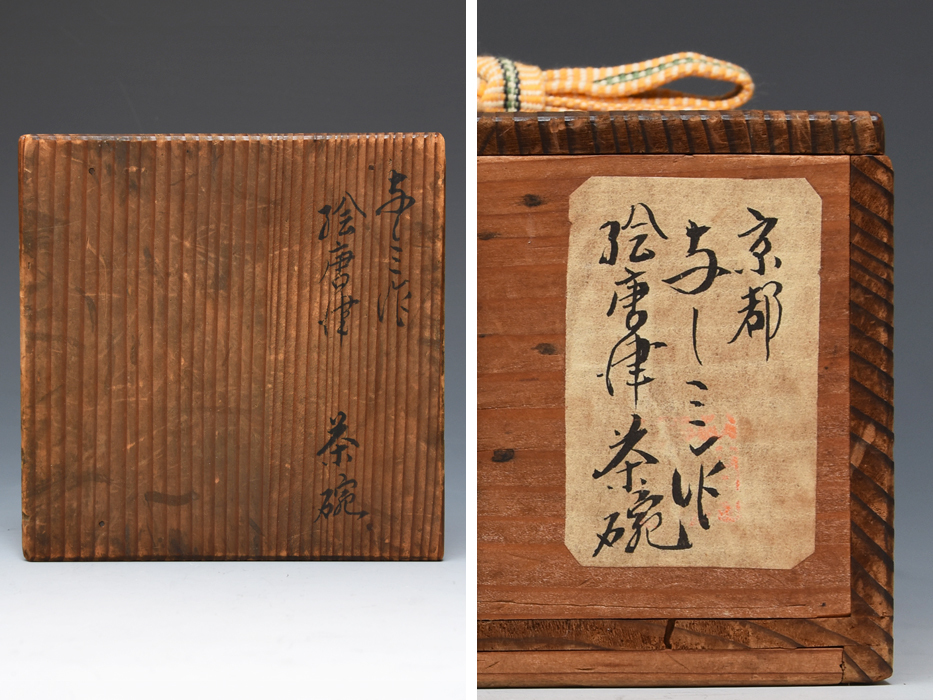 与し三作
絵唐津 茶碗
京都
与し三作
絵唐津茶碗